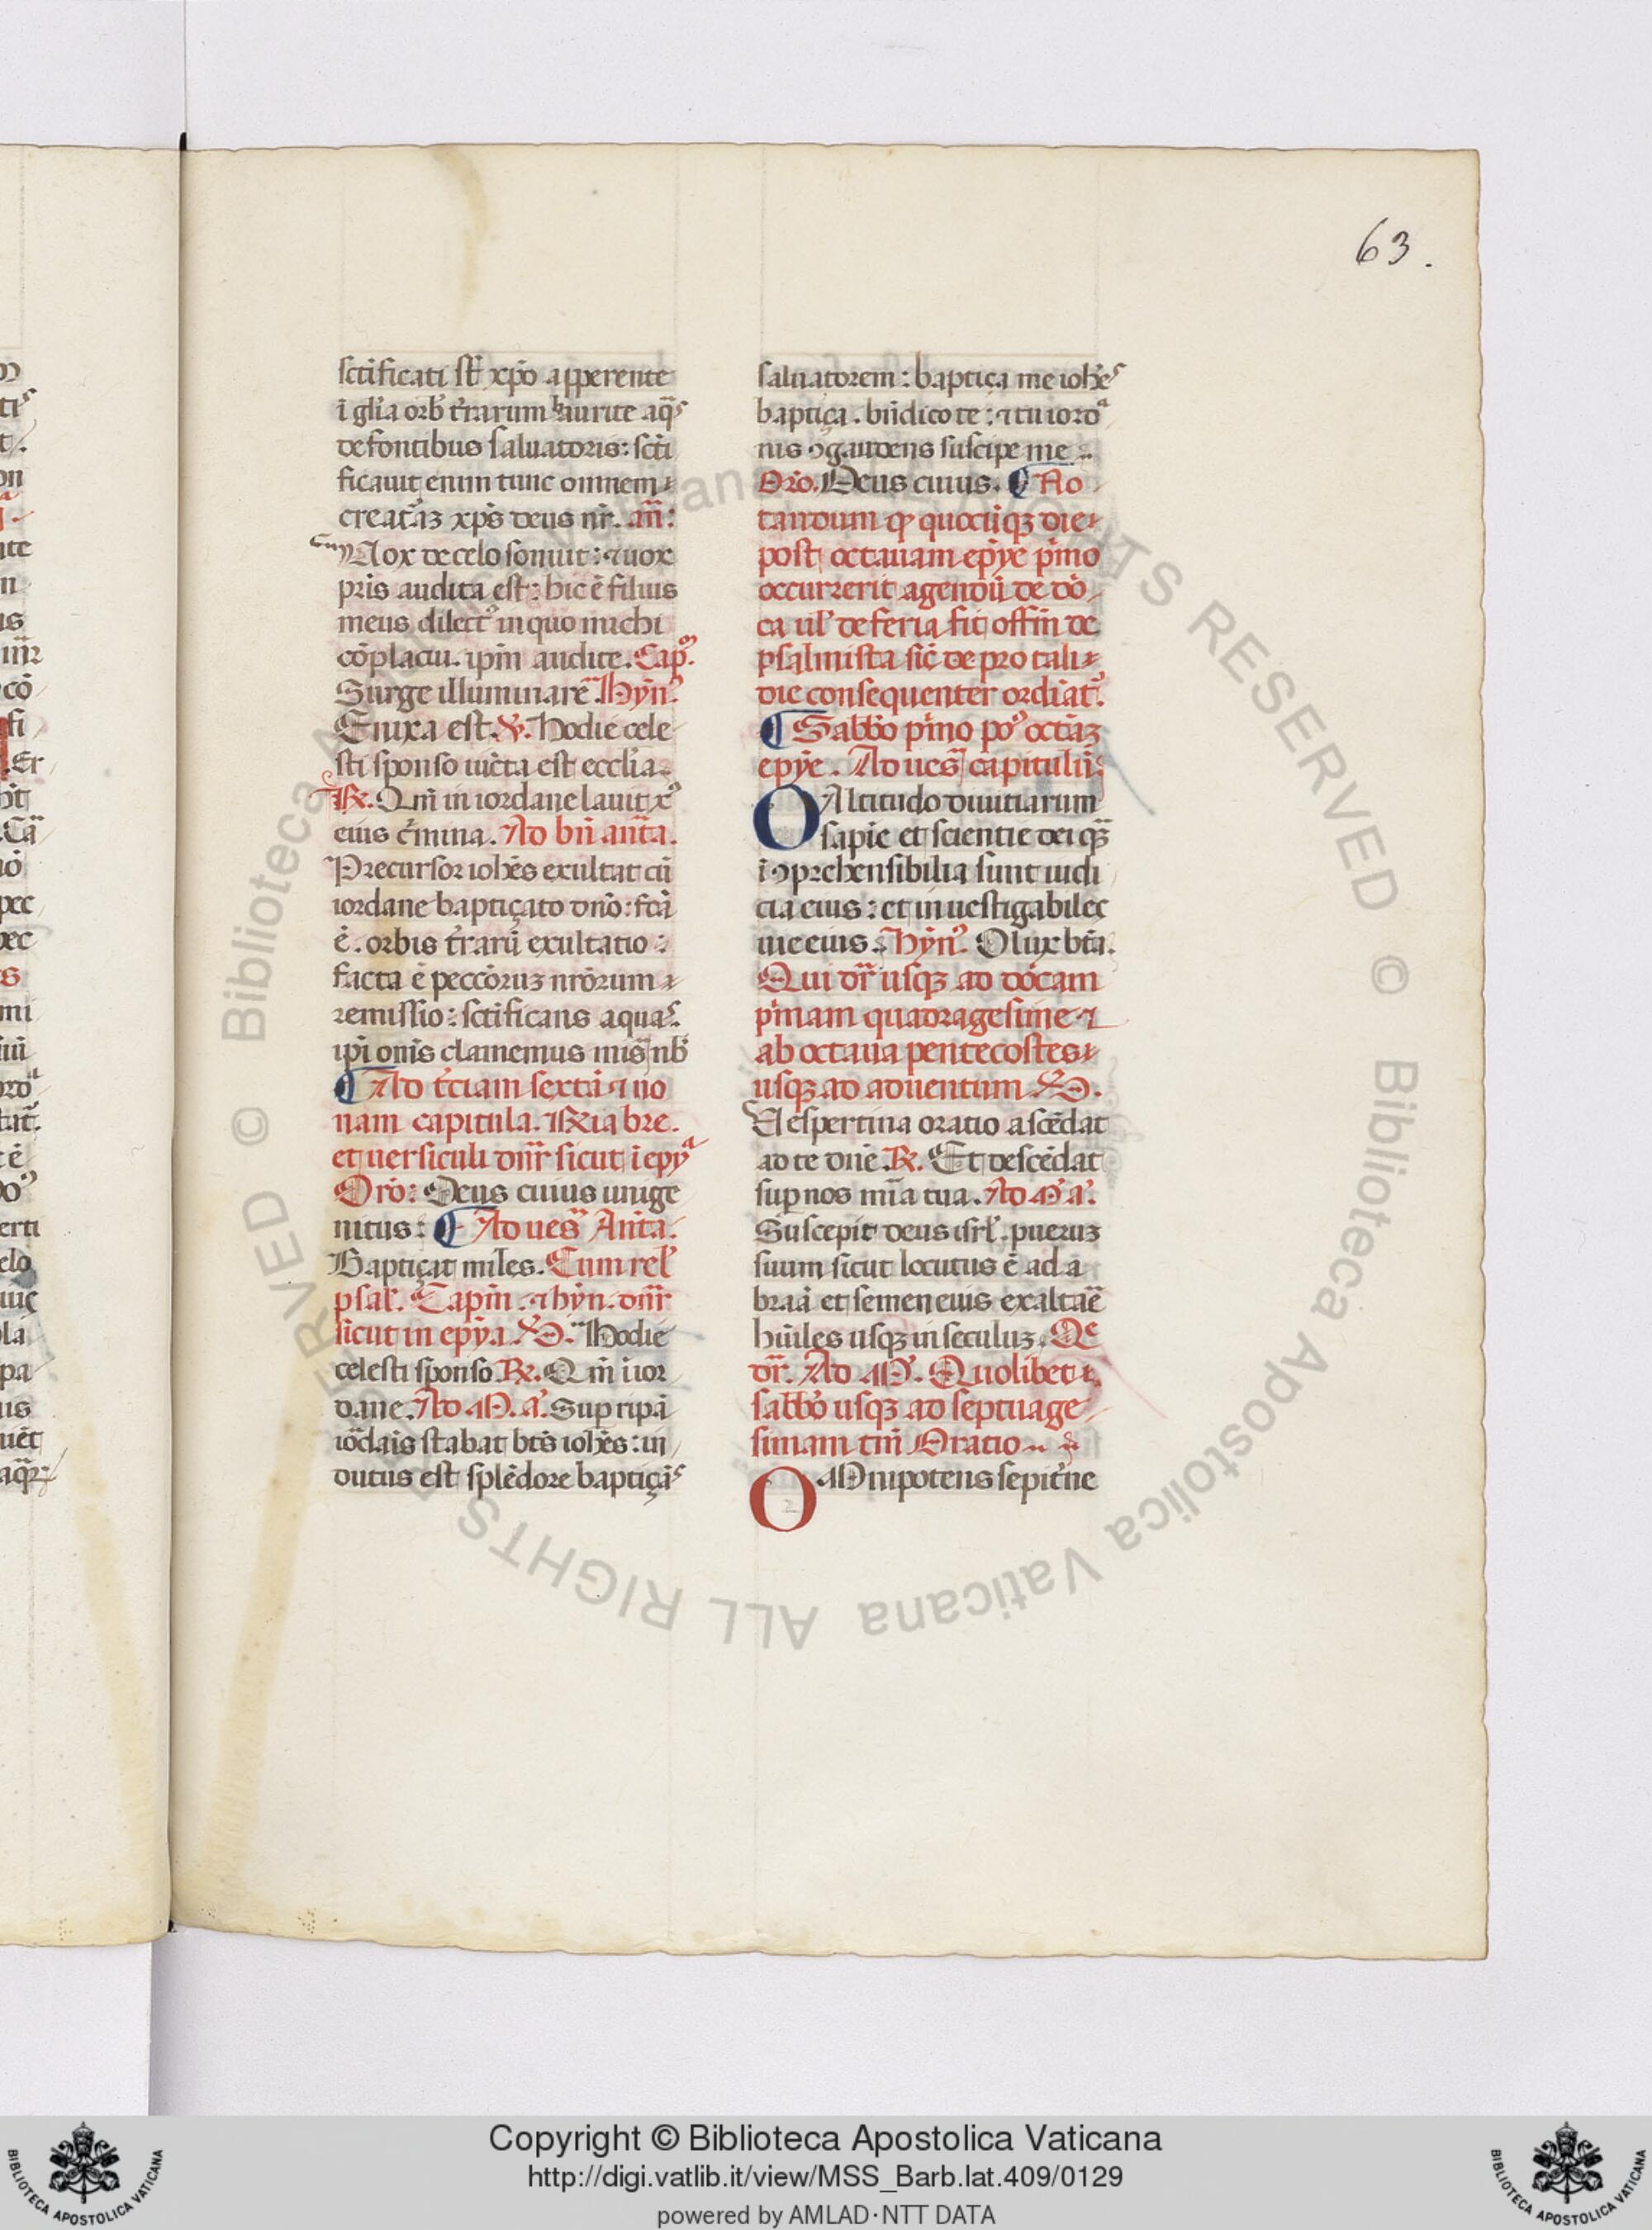 63.
sctificati st xpo apperente
i glia orb trarum haurite aqs
de fontibus saluatoris: scti
ficauit enim tunc omnem
creatāz xps deus nr. an:
Vox de celo sonuit: ⁊ uox
pris audita est: hic ē filius
meus dilect' in quo michi
cōplacui. ipm audite. Cap.
Surge illuminare Hyn.
Enixa est. V. Hodie cele
sti sponso iūcta est ecclia.
R. Qm in iordane lauit x
eius c̄mina. Ad bn anta.
Precursor iohes exultat cū
iordane baptiçato dno: fcā
ē. orbis trarū exultatio:
facta ē peccōruz nrōrum
remissio: sctificans aquas.
ipi onis clamemus mis nb
Ad tciam sextā ⁊ no
nam capitula. Rria bre.
et uersiculi dnr sicut i epya
Oro: Deus cuius unige
nitus: Ad ues Anta.
Baptiçat miles. Cum rel
psal. Capm. ⁊ hyn. dnr
sicut in epya. V. Hodie
celesti sponso R. Qm i ior
dane. Ad M. a. Sup ripā
iōdais stabat bts iohes: in
dutus est splēdore baptiçās
saluatorem: baptiça me iohes
baptiça. bndico te: ⁊ tu iorda
nis ↄgaudens suscipe me.
Oro. Deus cuius. No
tandum ꝙ quocūqz die
post octauam epye pmo
occurrerit agendū de dō
ca ul de feria fit offm de
psalmista sic de pro tali
die consequenter ordiat.
Sabbo pmo po octāz
epye. Ad ues capitulū.
O Altitudo diuitiarum
sapie et scientie dei qz
i ↄprehensibilia sunt iudi
cia eius: et inuestigabiles
uie eius. Hyn. O lux bta.
Qui dr usqz ad dōcam
pmam quadragesime ⁊
ab octaua pentecostes
usqz ad aduentum V.
Vespertina oratio ascēdat
ad te dne. R. Et descēdat
sup nos mia tua. Ad M a.
Suscepit deus isrl. pueruz
suum sicut locutus ē ad a
braā et semen eius exaltaē
hūiles usqz in seculuz. Qe
dr. Ad M. Quolibet
sabbo usqz ad septuage
simam tm Oratio
OMnipotens sepitne
Copyright © Biblioteca Apostolica Vaticana
http://digi.vatlib.it/view/MSS_Barb.lat.409/0129
powered by AMLAD·NTT DATA
BIBLIOTECA APOSTOLICA VATICANA
BIBLIOTECA APOSTOLICA VATICANA
© Biblioteca Apostolica Vaticana ALL RIGHTS RESERVED © Biblioteca Apostolica Vaticana ALL RIGHTS RESERVED